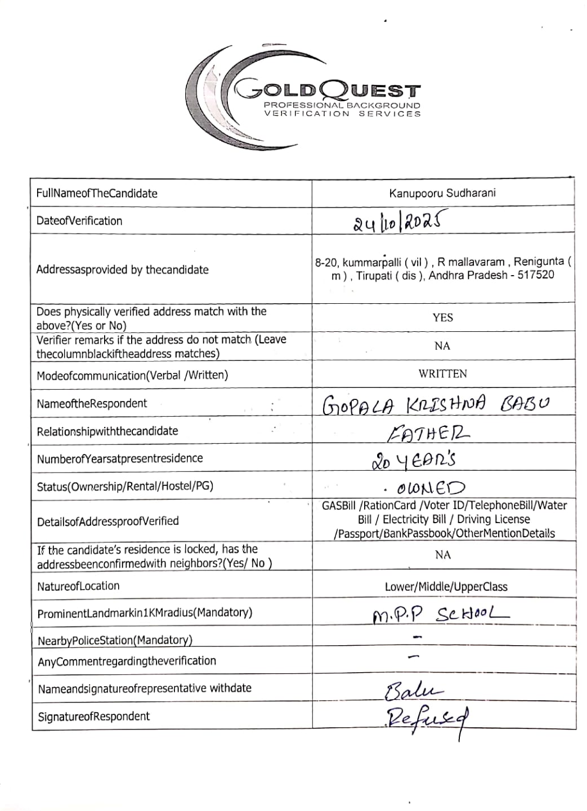 GOLDQUEST
PROFESSIONAL BACKGROUND
VERIFICATION SERVICES
FullNameofTheCandidate Kanupooru Sudharani
DateofVerification 24/10/2025
Addressasprovided by thecandidate 8-20, kummarpalli ( vil ) , R mallavaram , Renigunta (
m ) , Tirupati ( dis ), Andhra Pradesh - 517520
Does physically verified address match with the
above?(Yes or No) YES
Verifier remarks if the address do not match (Leave
thecolumnblackiftheaddress matches) NA
Modeofcommunication(Verbal /Written) WRITTEN
NameoftheRespondent GOPALA KRISHNA BABU
Relationshipwiththecandidate FATHER
NumberofYearsatpresentresidence 20 YEAR'S
Status(Ownership/Rental/Hostel/PG) OWNED
DetailsofAddressproofVerified GASBill /RationCard /Voter ID/TelephoneBill/Water
Bill / Electricity Bill / Driving License
/Passport/BankPassbook/OtherMentionDetails
If the candidate's residence is locked, has the
addressbeenconfirmedwith neighbors?(Yes/ No ) NA
NatureofLocation Lower/Middle/UpperClass
ProminentLandmarkin1KMradius(Mandatory) M.P.P SCHOOL
NearbyPoliceStation(Mandatory) –
AnyCommentregardingtheverification –
Nameandsignatureofrepresentative withdate Balu
SignatureofRespondent Refused